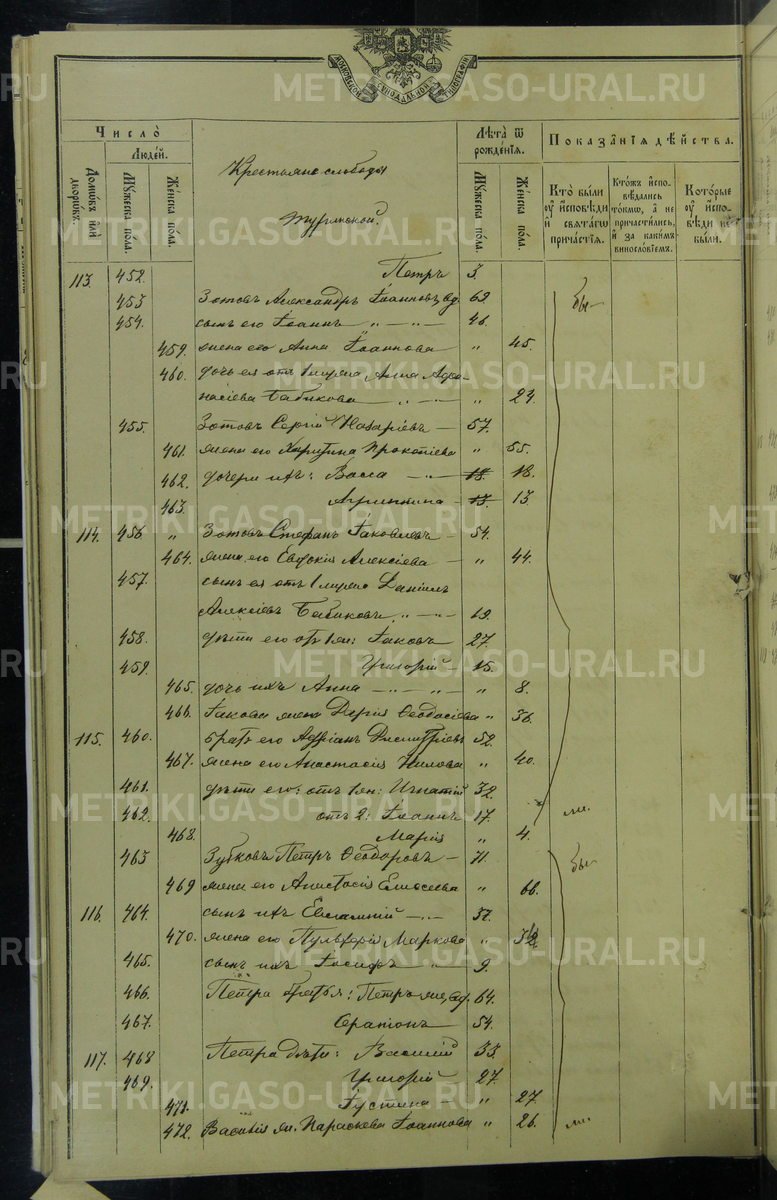 МОСКОВСКОЙ СѴНОДАЛЬНОЙ ТИПОГРАФІИ
Число̀ Людей. Лѣта ѿ рожденїѧ. Показанїѧ дѣйства.
Домѡвъ или дворѡвъ. Мꙋжеска пола. Женска пола. Мꙋжеска пола. Женска пола. Кто были ᲂу исповѣди и свѧтагѡ причастїѧ. Ктожъ исповѣдались токмѡ, а не причастились, и за какимъ винословїемъ. Которые ᲂу исповѣди не были.
Крестьяне слободы
Туринской.
113. 452. Петръ 3.
453 Зотовъ Александръ Іоанновъ, вд. 69 бы
454. сынъ его Іоаннъ „ 46.
459. жена его Анна Іоаннова „ 45.
460. дочь ея отъ 1 мужа Анна Афо-
насіева Бабикова „ 24.
455. Зотовъ Сергій Назаріевъ 57.
461. жена его Харитина Прокопіева „ 55.
462. дочери ихъ: Васса 18. 18.
463. Агриппина 13. 13.
114. 456 „ Зотовъ Стефанъ Іаковлевъ 54.
464. жена его Евдокія Алексіева „ 44.
457. сынъ ея отъ 1 мужа Даніилъ
Алексіевъ Бабиковъ „ 19.
458. дѣти его отъ 1 ж: Іаковъ 27.
459. Григорій 15.
465. дочь ихъ Анна „ „ 8.
466. Іакова жена Дарія Ѳеодосіева „ 36.
115. 460. братъ его Адріанъ Димитріевъ 52.
467. жена его Анастасія Нилова „ 40.
461. дѣти его: отъ 1 ж: Игнатій 32.
462. отъ 2: Іоаннъ 17. ли.
468. Марія „ 4.
463 Зубковъ Петръ Ѳеодоровъ 71. бы
469 жена его Анастасія Елисеева „ 66.
116. 464. сынъ ихъ Евлампій 37.
470. жена его Пульхерія Маркова „
465. сынъ ихъ Іосифъ „ 9.
466. Петра братья: Петръ же, вд. 64.
467. Ератонъ 54.
117. 468 Петра дѣти: Василій 33.
469. Григорій 27.
471. Іустина „ 27.
472. Василія ж. Параскева Іоаннова „ 26. ли.
METRIKI.GASO-URAL.RU